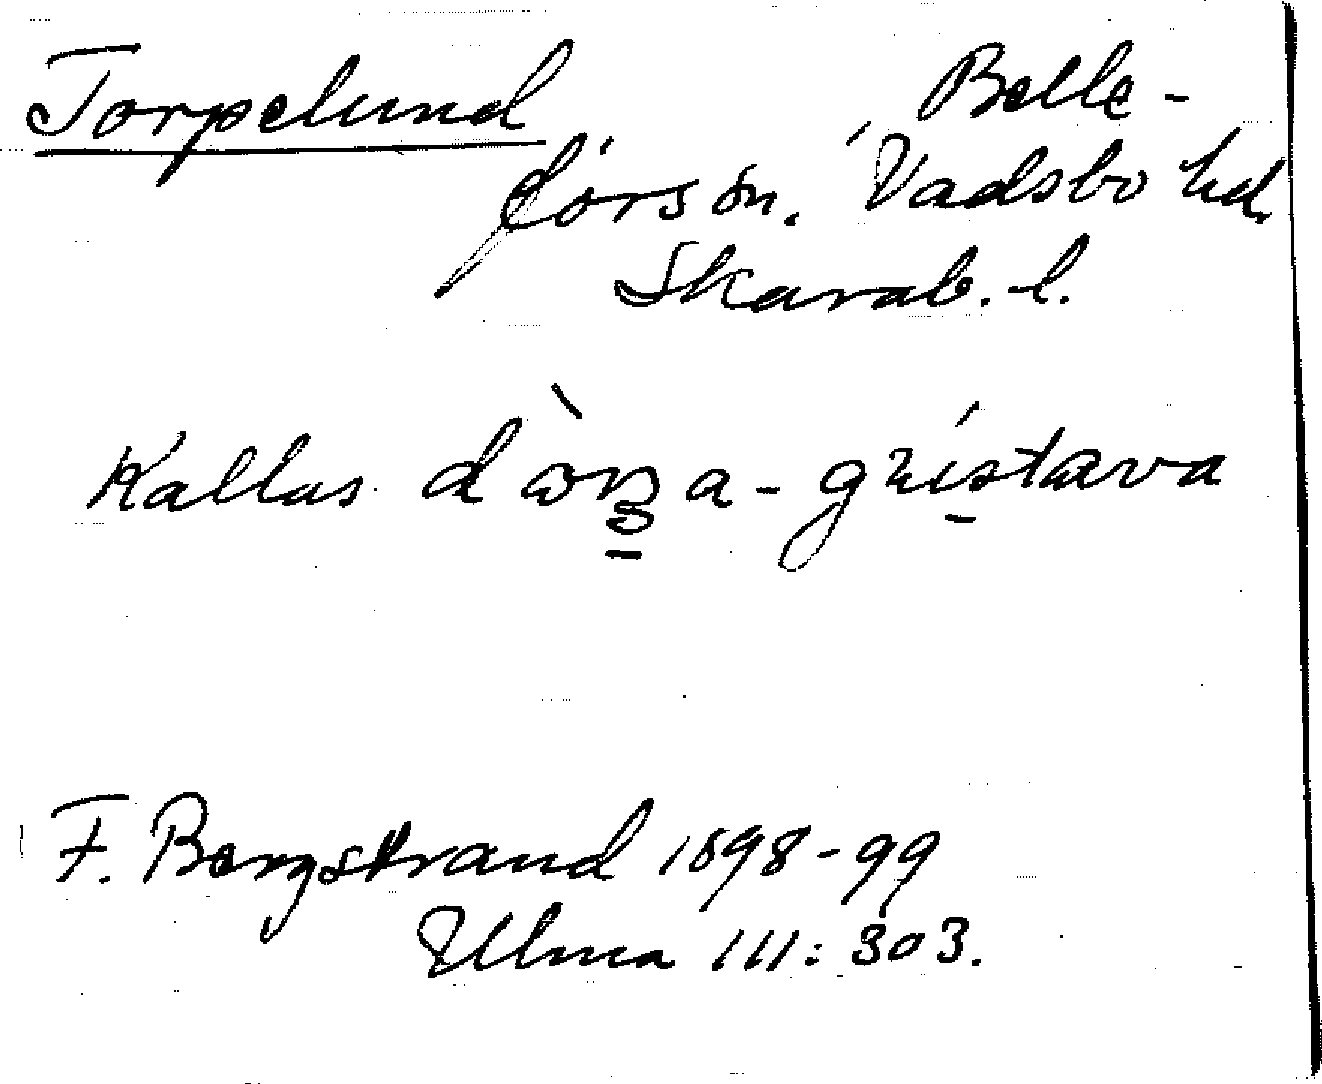 Torpelund Belle-
fors sn. Vadsbo hd.
Skarab. l.
Kallas
F. Bergstrand 1898-99
Ulma 111:303.